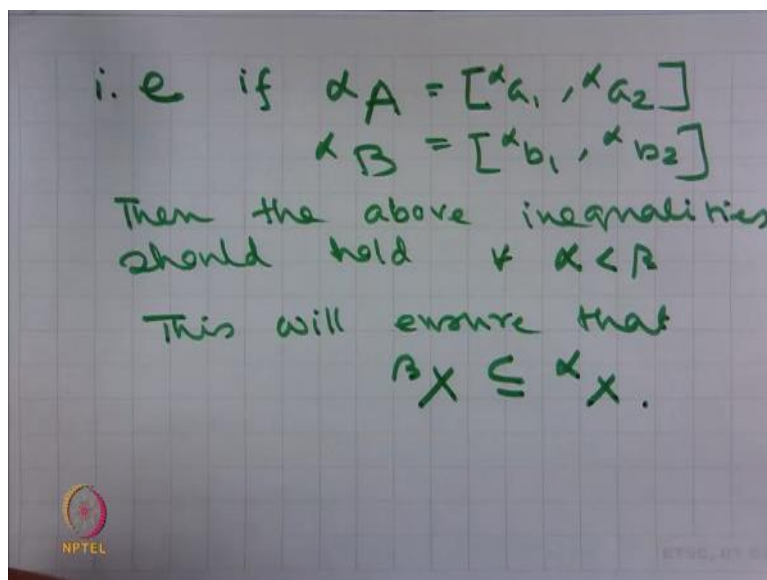 i.e if ᵅA = [ᵅa₁, ᵅa₂]
ᵅB = [ᵅb₁, ᵅb₂]
Then the above inequalities
should hold ∀ α < β
This will ensure that
ᵝX ⊆ ᵅX.
NPTEL